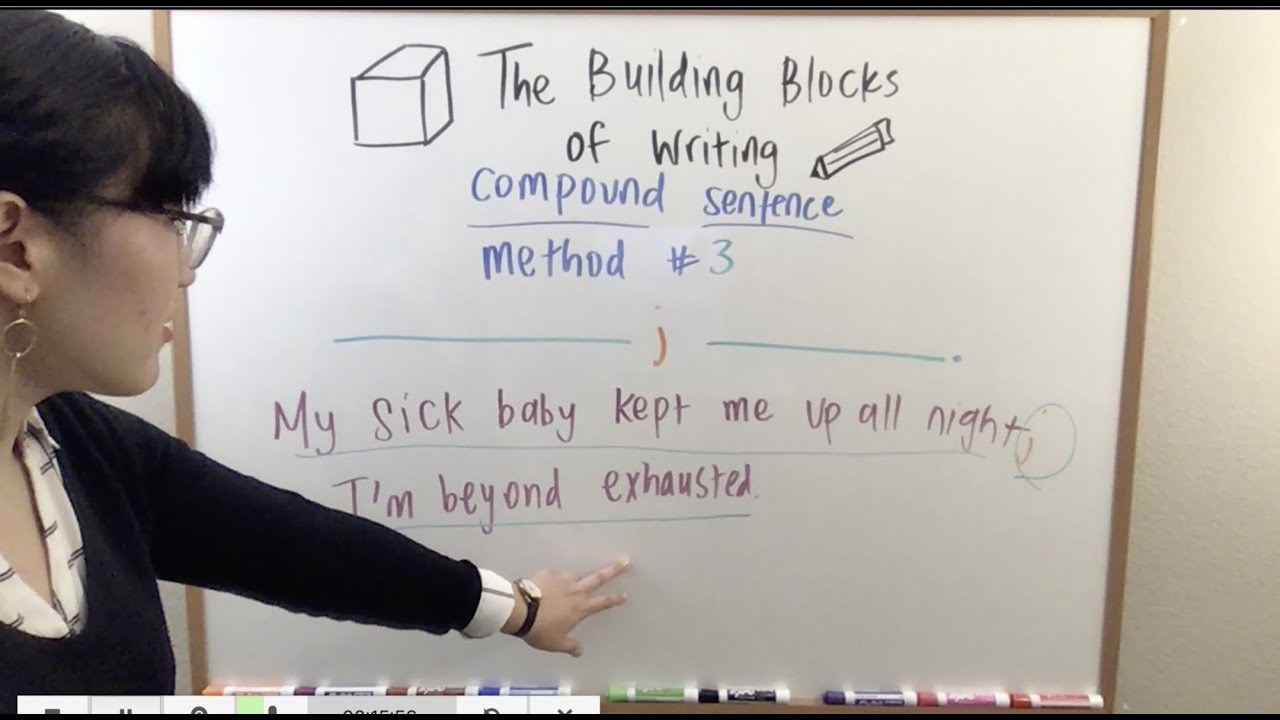 The Building Blocks
of Writing
Compound sentence
method #3
;
.
My sick baby kept me up all night;
I'm beyond exhausted.